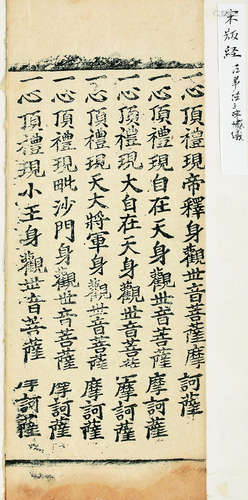 宋版经
一心頂禮現帝釋身觀世音菩薩摩訶薩
一心頂禮現自在天身觀世音菩薩摩訶薩
一心頂禮現大自在天身觀世音菩薩摩訶薩
一心頂禮現天大將軍身觀世音菩薩摩訶薩
一心頂禮現毗沙門身觀世音菩薩摩訶薩
一心頂禮現小王身觀世音菩薩摩訶薩